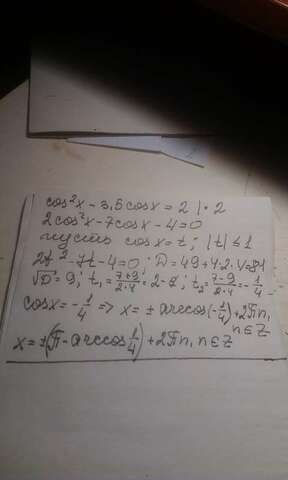 cos²x - 3,5cosx = 2 | · 2
2cos²x - 7cosx - 4 = 0
пусть cosx = t ; |t| ≤ 1
2t² - 7t - 4 = 0 ; D = 49 + 4·2·4 = 81
√D = 9 ; t₁ = (7+9)/(2·4) = 2 - ; t₂ = (7-9)/(2·4) = -1/4
cosx = -1/4 => x = ± arccos(-1/4) + 2πn,
n ∈ Z
x = ±(π - arccos 1/4) + 2πn, n ∈ Z